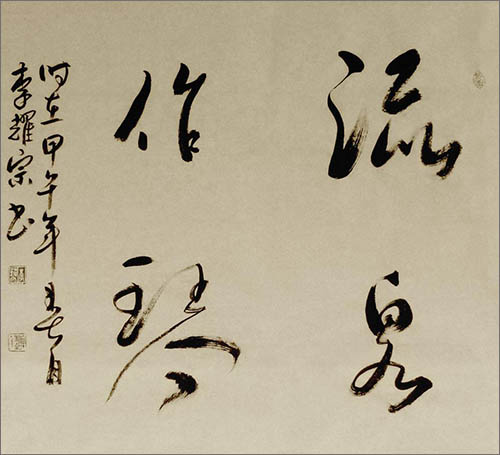 流泉
作琴
时在甲午年 月
李耀宗书